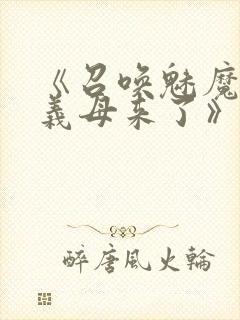 《召喚魅魔
義母来了》
醉唐風火輪